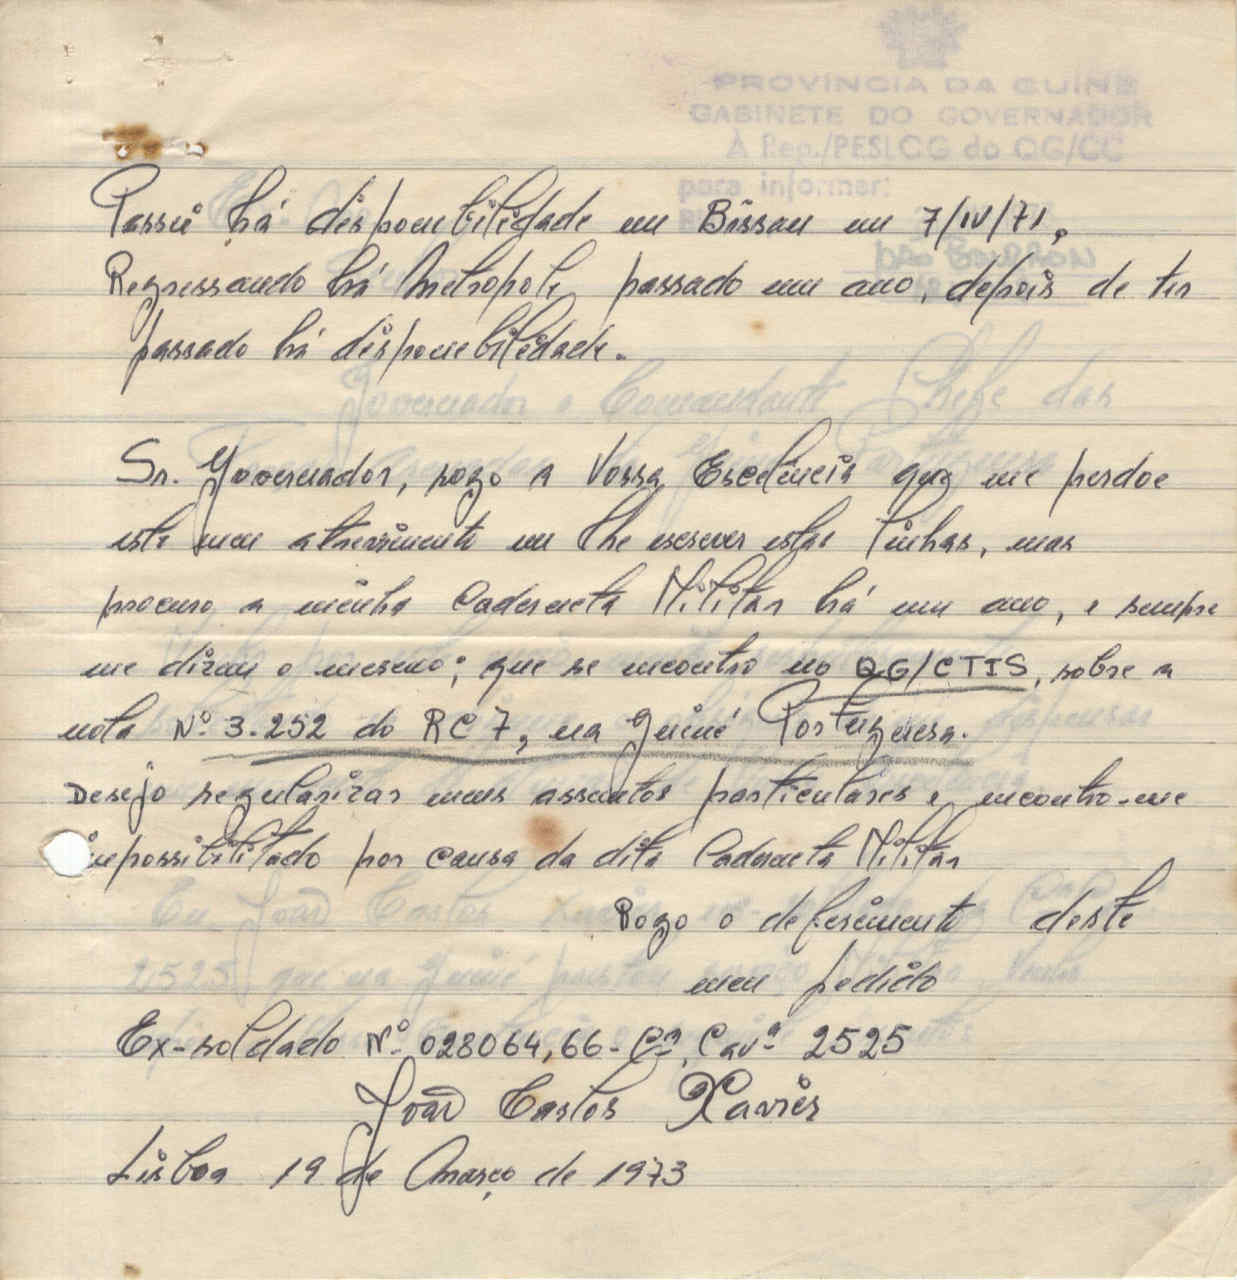 PROVÍNCIA DA GUINÉ
GABINETE DO GOVERNADOR
À Rep./PESLOG do QG/CC
para informar:
Passei há despouebilidade em Bissau em 7/IV/71,
Regressando há Metropole passado um ano, depois de ter
passado há despouebilidade.
Sr. Governador, rogo a Vossa Escelência que me perdoe
este meu atrevimento em lhe escrever estas linhas, mas
procuro a minha Caderneta Militar há um ano, e sempre
me dizem o mesmo; que se encontra no QG/CTIS, sobre a
nota Nº 3.252 do RC 7, na Guiné Portuguesa.
Desejo regularizar meus assuntos particulares e encontro-me
impossibilitado por causa da dita Caderneta Militar
Rogo o deferimento deste
meu pedido
Ex-soldado Nº 028064,66 - Cª. Cavª 2525
João Carlos Xavier
Lisboa 19 de Março de 1973